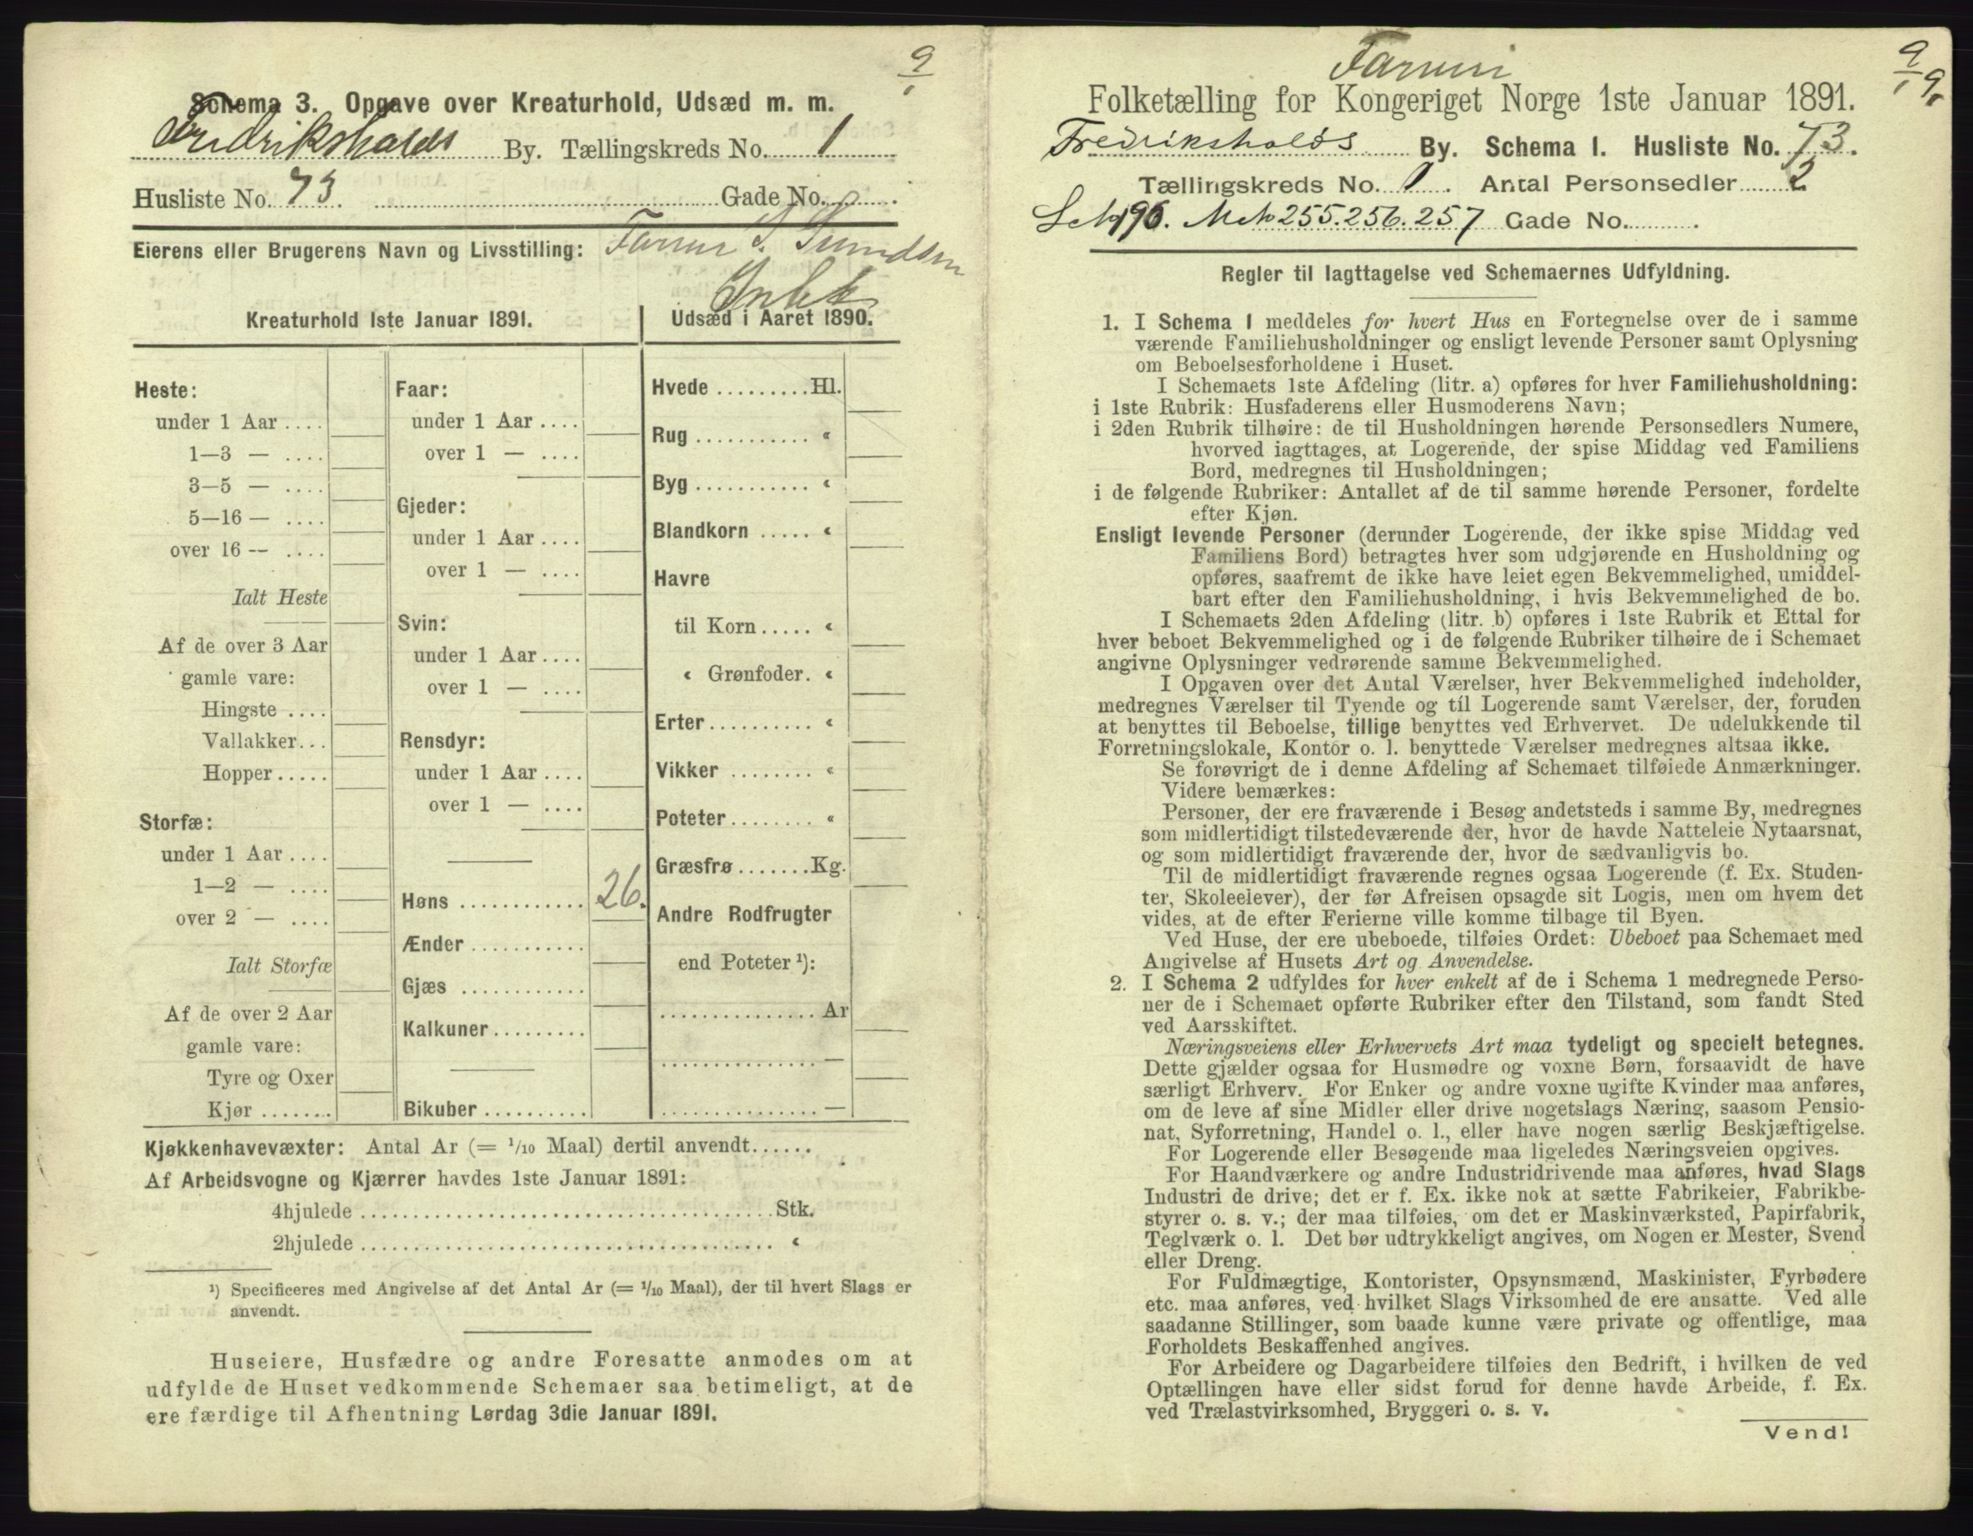 9/1
Schema 3. Opgave over Kreaturhold, Udsæd m. m.
Fredrikshalds By. Tællingskreds No. 1
Husliste No. 73. Gade No.
Eierens eller Brugerens Navn og Livsstilling:
Kreaturhold 1ste Januar 1891.
Heste:
under 1 Aar ....
1—3 — ....
3—5 — ....
5—16 — ....
over 16 — ....
Ialt Heste
Af de over 3 Aar
gamle vare:
Hingste ....
Vallakker...
Hopper.....
Storfæ:
under 1 Aar ....
1—2 — ....
over 2 — ....
Ialt Storfæ
Af de over 2 Aar
gamle vare:
Tyre og Oxer
Kjør .......
Faar:
under 1 Aar ....
over 1 — ....
Gjeder:
under 1 Aar ....
over 1 — ....
Svin:
under 1 Aar....
over 1 — ....
Rensdyr:
under 1 Aar....
over 1 — ....
Høns ............ 26.
Ænder ...........
Gjæs ............
Kalkuner.........
Bikuber..........
Udsæd i Aaret 1890.
Hvede .........Hl.
Rug ........... «
Byg ........... «
Blandkorn ..... «
Havre
til Korn..... «
« Grønfoder. «
Erter.......... «
Vikker ........ «
Poteter........ «
Græsfrø .......Kg.
Andre Rodfrugter
end Poteter ¹):
...............Ar
............... —
...............—
Kjøkkenhavevæxter: Antal Ar (= 1/10 Maal) dertil anvendt......
Af Arbeidsvogne og Kjærrer havdes 1ste Januar 1891:
4hjulede ....................................... Stk.
2hjulede ....................................... «
¹) Specificeres med Angivelse af det Antal Ar (= 1/10 Maal), der til hvert Slags er
anvendt.
Huseiere, Husfædre og andre Foresatte anmodes om at
udfylde de Huset vedkommende Schemaer saa betimeligt, at de
ere færdige til Afhentning Lørdag 3die Januar 1891.
9/1 9/1
Folketælling for Kongeriget Norge 1ste Januar 1891.
Fredrikshalds By. Schema I. Husliste No. 73.
Tællingskreds No. 1. Antal Personsedler 2
196. 255.256.257 Gade No.
Regler til Iagttagelse ved Schemaernes Udfyldning.
1. I Schema 1 meddeles for hvert Hus en Fortegnelse over de i samme
værende Familiehusholdninger og ensligt levende Personer samt Oplysning
om Beboelsesforholdene i Huset.
I Schemaets 1ste Afdeling (litr. a) opføres for hver Familiehusholdning:
i 1ste Rubrik: Husfaderens eller Husmoderens Navn;
i 2den Rubrik tilhøire: de til Husholdningen hørende Personsedlers Numere,
hvorved iagttages, at Logerende, der spise Middag ved Familiens
Bord, medregnes til Husholdningen;
i de følgende Rubriker: Antallet af de til samme hørende Personer, fordelte
efter Kjøn.
Ensligt levende Personer (derunder Logerende, der ikke spise Middag ved
Familiens Bord) betragtes hver som udgjørende en Husholdning og
opføres, saafremt de ikke have leiet egen Bekvemmelighed, umiddel-
bart efter den Familiehusholdning, i hvis Bekvemmelighed de bo.
I Schemaets 2den Afdeling (litr. b) opføres i 1ste Rubrik et Ettal for
hver beboet Bekvemmelighed og i de følgende Rubriker tilhøire de i Schemaet
angivne Oplysninger vedrørende samme Bekvemmelighed.
I Opgaven over det Antal Værelser, hver Bekvemmelighed indeholder,
medregnes Værelser til Tyende og til Logerende samt Værelser, der, foruden
at benyttes til Beboelse, tillige benyttes ved Erhvervet. De udelukkende til
Forretningslokale, Kontor o. l. benyttede Værelser medregnes altsaa ikke.
Se forøvrigt de i denne Afdeling af Schemaet tilføiede Anmærkninger.
Videre bemærkes:
Personer, der ere fraværende i Besøg andetsteds i samme By, medregnes
som midlertidigt tilstedeværende der, hvor de havde Natteleie Nytaarsnat,
og som midlertidigt fraværende der, hvor de sædvanligvis bo.
Til de midlertidigt fraværende regnes ogsaa Logerende (f. Ex. Studen-
ter, Skoleelever), der før Afreisen opsagde sit Logis, men om hvem det
vides, at de efter Ferierne ville komme tilbage til Byen.
Ved Huse, der ere ubeboede, tilføies Ordet: Ubeboet paa Schemaet med
Angivelse af Husets Art og Anvendelse.
2. I Schema 2 udfyldes for hver enkelt af de i Schema 1 medregnede Perso-
ner de i Schemaet opførte Rubriker efter den Tilstand, som fandt Sted
ved Aarsskiftet.
Næringsveiens eller Erhvervets Art maa tydeligt og specielt betegnes.
Dette gjælder ogsaa for Husmødre og voxne Børn, forsaavidt de have
særligt Erhverv. For Enker og andre voxne ugifte Kvinder maa anføres,
om de leve af sine Midler eller drive nogetslags Næring, saasom Pensio-
nat, Syforretning, Handel o. l., eller have nogen særlig Beskjæftigelse.
For Logerende eller Besøgende maa ligeledes Næringsveien opgives.
For Haandværkere og andre Industridrivende maa anføres, hvad Slags
Industri de drive; det er f. Ex. ikke nok at sætte Fabrikeier, Fabrikbe-
styrer o. s. v.; der maa tilføies, om det er Maskinværksted, Papirfabrik,
Teglværk o. l. Det bør udtrykkeligt angives, om Nogen er Mester, Svend
eller Dreng.
For Fuldmægtige, Kontorister, Opsynsmænd, Maskinister, Fyrbødere
etc. maa anføres, ved hvilket Slags Virksomhed de ere ansatte. Ved alle
saadanne Stillinger, som baade kunne være private og offentlige, maa
Forholdets Beskaffenhed angives.
For Arbeidere og Dagarbeidere tilføies den Bedrift, i hvilken de ved
Optællingen have eller sidst forud for denne havde Arbeide, f. Ex.
ved Trælastvirksomhed, Bryggeri o. s. v.
Vend!